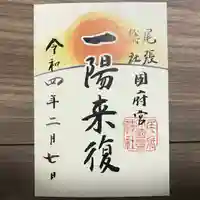 尾張
総社
国府宮
一陽来復
令和四年二月七日